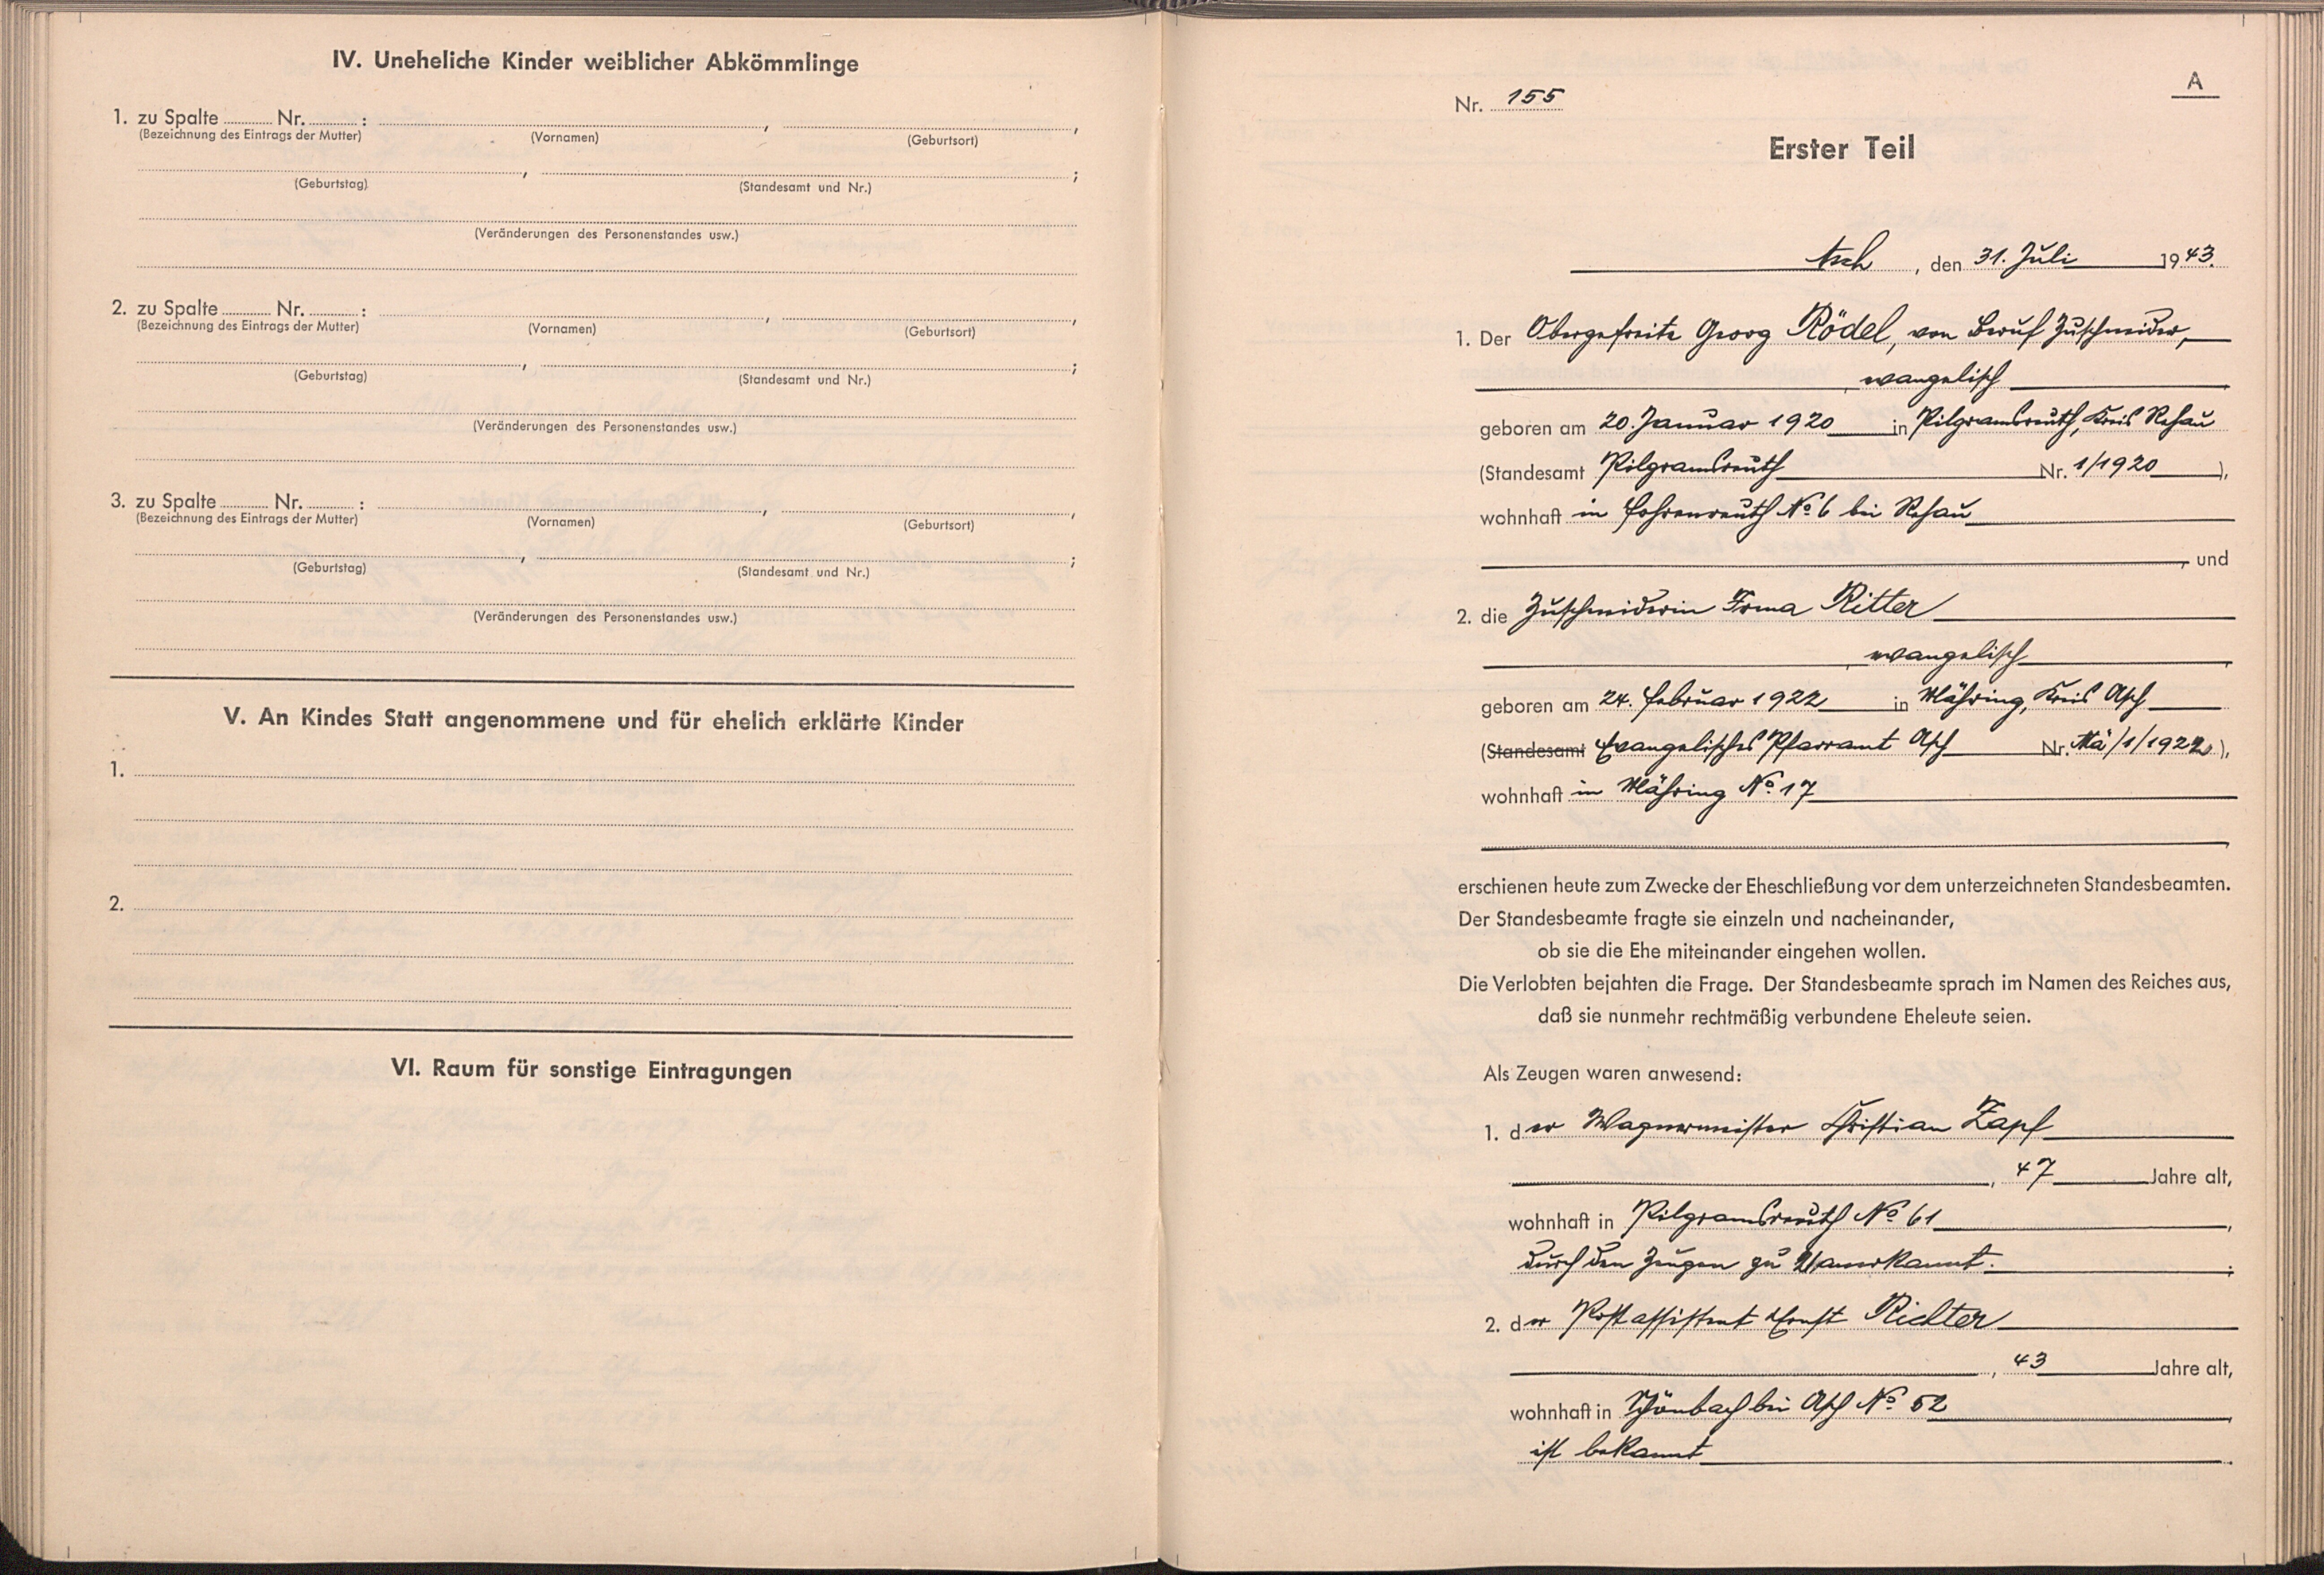 IV. Uneheliche Kinder weiblicher Abkömmlinge
1. zu Spalte ........ Nr. ........ : ........ , ........ ,
(Bezeichnung des Eintrags der Mutter) (Vornamen) (Geburtsort)
........ , ........ ;
(Geburtstag) (Standesamt und Nr.)
(Veränderungen des Personenstandes usw.)
2. zu Spalte ........ Nr. ........ : ........ , ........ ,
(Bezeichnung des Eintrags der Mutter) (Vornamen) (Geburtsort)
........ , ........ ;
(Geburtstag) (Standesamt und Nr.)
(Veränderungen des Personenstandes usw.)
3. zu Spalte ........ Nr. ........ : ........ , ........ ,
(Bezeichnung des Eintrags der Mutter) (Vornamen) (Geburtsort)
........ , ........ ;
(Geburtstag) (Standesamt und Nr.)
(Veränderungen des Personenstandes usw.)
V. An Kindes Statt angenommene und für ehelich erklärte Kinder
1.
2.
VI. Raum für sonstige Eintragungen
A
Nr. 155
Erster Teil
Asch, den 31. Juli 1943.
1. Der Obergefreite Georg Rödel, von Beruf Zuschneider,
, evangelisch ,
geboren am 20. Januar 1920 in Pilgramsreuth, Kreis Rehau
(Standesamt Pilgramsreuth Nr. 1/1920 ),
wohnhaft in Fohrenreuth No 6 bei Rehau
, und
2. die Zuschneiderin Irma Ritter
, evangelisch ,
geboren am 24. Februar 1922 in Mähring, Kreis Asch
(Standesamt Evangelisches Pfarramt Asch Nr. Mä/1/1922 ),
wohnhaft in Mähring No 17
,
erschienen heute zum Zwecke der Eheschließung vor dem unterzeichneten Standesbeamten.
Der Standesbeamte fragte sie einzeln und nacheinander,
ob sie die Ehe miteinander eingehen wollen.
Die Verlobten bejahten die Frage. Der Standesbeamte sprach im Namen des Reiches aus,
daß sie nunmehr rechtmäßig verbundene Eheleute seien.
Als Zeugen waren anwesend:
1. der Wagnermeister Christian Zapf
, 47 Jahre alt,
wohnhaft in Pilgramsreuth No 61 ,
durch den Zeugen zu 2) anerkannt. ;
2. der Postassistent Ernst Richter
, 43 Jahre alt,
wohnhaft in Schönbach bei Asch No 52 ,
ist bekannt .